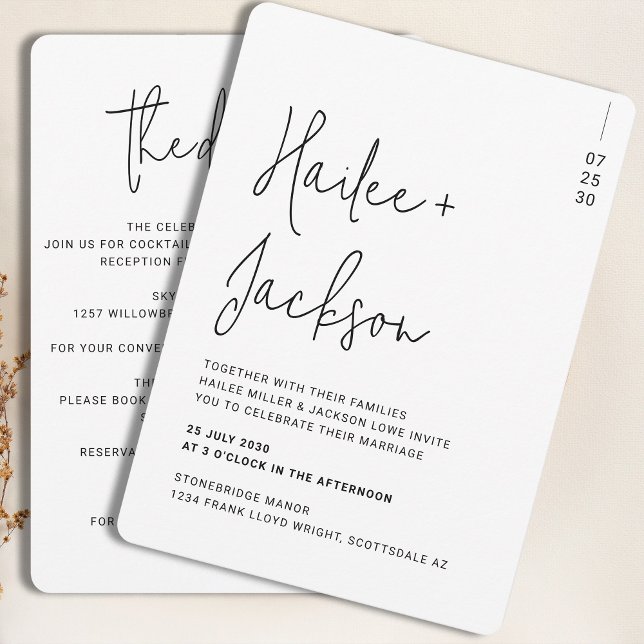 Hailee +
Jackson
07
25
30
TOGETHER WITH THEIR FAMILIES
HAILEE MILLER & JACKSON LOWE INVITE
YOU TO CELEBRATE THEIR MARRIAGE
25 JULY 2030
AT 3 O'CLOCK IN THE AFTERNOON
STONEBRIDGE MANOR
1234 FRANK LLOYD WRIGHT, SCOTTSDALE AZ
the
THE
JOIN US FOR
RECEPTION
SKY
1257
FOR YOUR
PLEASE BOOK
FOR